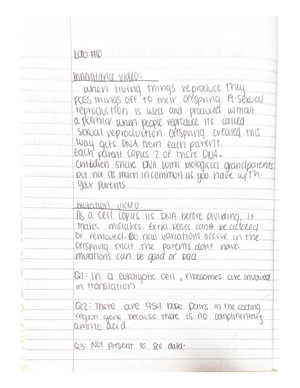 Lab #10
Inheritance video:
When living things reproduce they
pass things off to their offspring. A-sexual
reproduction is used and produced without
a partner when people reproduce its called
sexual reproduction. Offspring created this
way gets DNA from each parent.
Each parent copies 2 of there DNA.
Children share DNA with biological grandparents
but not as much in common as you have with
your parents
Mutation video:
As a cell copies its DNA before dividing, it
makes mistakes. Extra bases could be added
or removed. So new variations occur in the
offspring that the parents dont have.
mutations can be good or bad.
Q1: In a eukaryotic cell, ribosomes are involved
in translation
Q2: There are 954 base pairs in the coding
region gene because there is no complimentary
amino acid.
Q3: Not present to go data-